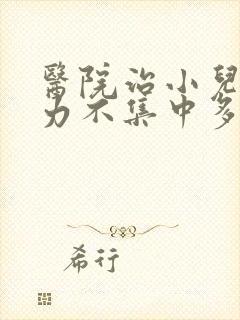 醫院治小兒
力不集中多
希行